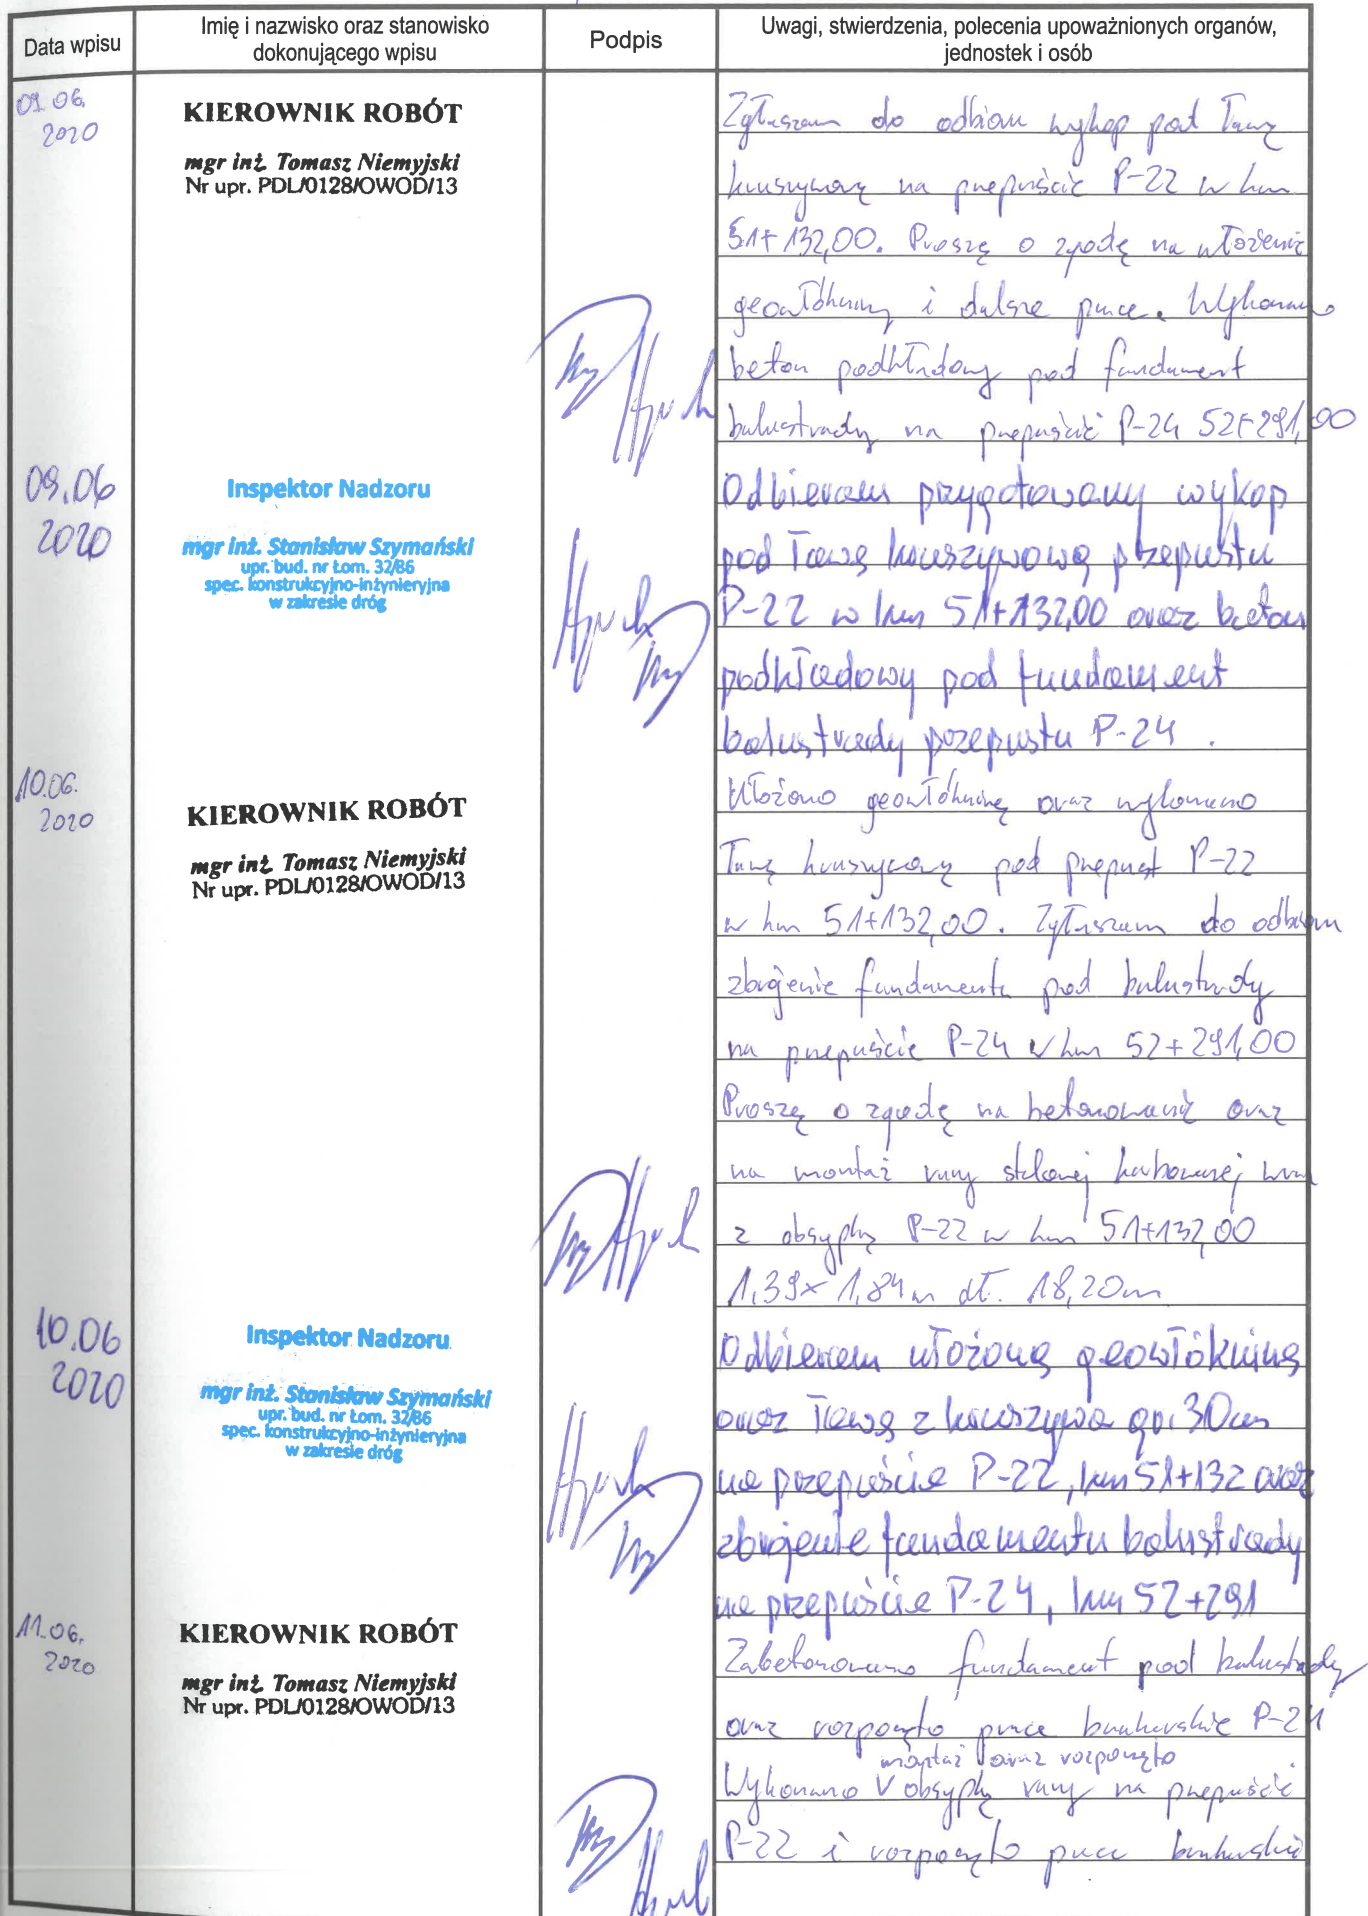 Data wpisu
Imię i nazwisko oraz stanowisko
dokonującego wpisu
Podpis
Uwagi, stwierdzenia, polecenia upoważnionych organów,
jednostek i osób
09.06.
2020
KIEROWNIK ROBÓT
mgr inż. Tomasz Niemyjski
Nr upr. PDL/0128/OWOD/13
Zgłaszam do odbioru wykop pod ławę
kruszywową na przepuście P-22 w km
51+132,00. Proszę o zgodę na ułożenie
geowłókniny i dalsze prace. Wykonano
beton podkładowy pod fundament
balustrady na przepuście P-24 52+291,00
09.06
2020
Inspektor Nadzoru
mgr inż. Stanisław Szymański
upr. bud. nr Łom. 32/86
spec. konstrukcyjno-inżynieryjna
w zakresie dróg
Odbieram przygotowany wykop
pod ławę kruszywową przepustu
P-22 w km 51+132,00 oraz beton
podkładowy pod fundament
balustrady przepustu P-24.
10.06.
2020
KIEROWNIK ROBÓT
mgr inż. Tomasz Niemyjski
Nr upr. PDL/0128/OWOD/13
Ułożono geowłókninę oraz wykonano
ławę kruszywową pod przepust P-22
w km 51+132,00. Zgłaszam do odbioru
zbrojenie fundamentu pod balustrady
na przepuście P-24 w km 52+291,00
Proszę o zgodę na betonowanie oraz
na montaż rury stalowej karbowanej wraz
z obsypką P-22 w km 51+132,00
1,39x1,84m dł. 18,20m
10.06
2020
Inspektor Nadzoru
mgr inż. Stanisław Szymański
upr. bud. nr Łom. 32/86
spec. konstrukcyjno-inżynieryjna
w zakresie dróg
Odbieram ułożoną geowłókninę
oraz ławę z kruszywa gr. 30cm
na przepuście P-22, km 51+132 oraz
zbrojenie fundamentu balustrady
na przepuście P-24, km 52+291
11.06.
2020
KIEROWNIK ROBÓT
mgr inż. Tomasz Niemyjski
Nr upr. PDL/0128/OWOD/13
Zabetonowano fundament pod balustrady
oraz rozpoczęto prace brukarskie P-24
montaż oraz rozpoczęto
Wykonano V obsypkę rury na przepuście
P-22 i rozpoczęto prace brukarskie